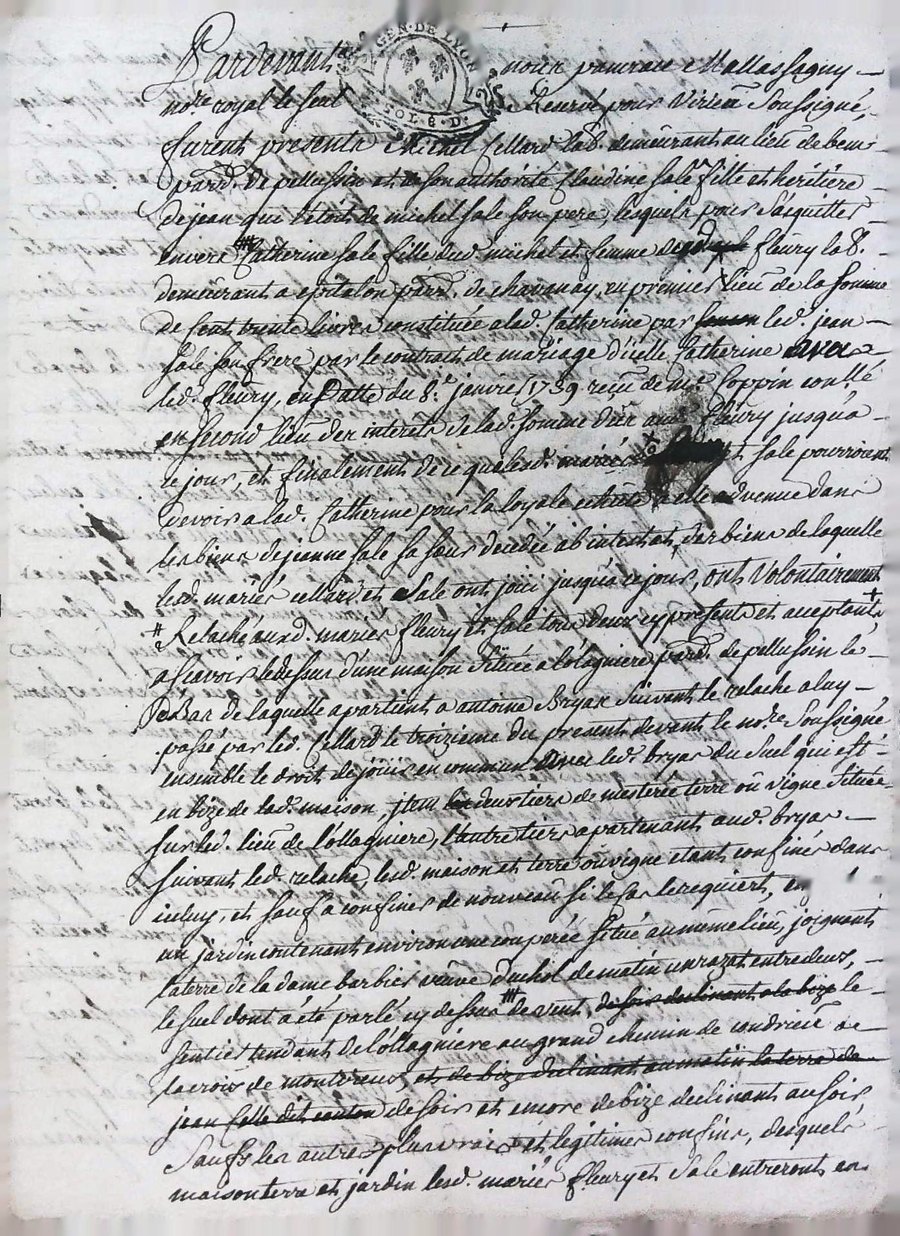 GEN·DE LYON
SOLS·D·
Pardevant nore pancrace Mallassagny
nore royal le seul Réservé pour Virieu Soussigné,
furent presents Michel Cellard lab. demeurant au lieu de
parr. de pellussin et de son authorité Claudine Sale fille et héritière
de jean qui l'étoit de michel Sale son pere, lesquels pour s'acquitter
envers Catherine Sale fille dud. michel et femme de fleury lab.
demeurant a epitalon parr. de chavanay, en premier lieu de la somme
de Cent trente livres constituée a lad. Catherine par led. jean
Sale son frere par le contract de mariage d'icelle Catherine avec
led. fleury, en Datte du 8e janvier 1739 reçu de me Coppin conllé
en second lieu des interets de lad. somme fleury jusqu'a
ce jour, et finalement de ce que lesd. mariés et Sale pourroient
devoir a lad. Catherine pour la loyale echute a elle advenue dans
les biens de jeanne Sale sa sœur decedée ab intestat, des biens de laquelle
lesd. mariés cellard et Sale ont joui jusqu'a ce jour, ont Volontairement
# Relaché aud. mariés fleury et Sale tous deux cy present et acceptants
a scavoir le dessus d'une maison Sitüée a lolagniere parr. de pellussin le
Bas de laquelle apartient a antoine Bryas Suivant le relache a luy
passé par led. Cellard le troizieme du present devant le nore Soussigné
ensemble le droit de joüir en commun avec led. bryas du Suel qui est
en bize de lad. maison, item les deux tiers de mesterée terre ou vigne Sitüée
sur led. lieu de l'ollagniere, l'autre tiers apartenant aud. bryas
suivant led. relache, lesd. maison et terre ou vigne etant confinés dans
iceluy, et sauf a confiner de nouveau si le cas le requiert,
un jardin contenant environ une couperée Situé au meme lieu, joignant
la terre de la dame barbier veuve Duchol de matin un razat entre deux,
le suel dont a été parlé cy dessus de vent, de soir declinant a la bize le
sentier tendant de l'ollagniere au grand chemin de condrieu a
la croix de montvieux et de bize declinant au matin la terre de
jean Celle dit de soir et encore de bize declinant au soir
Saufs les autres plus vrais et legitimes confins, desquels
maison terre et jardin lesd. mariés fleury et Sale entreront en